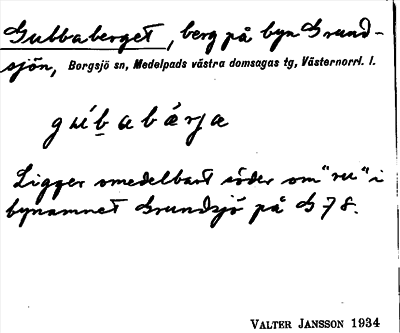 Gubbaberget, berg på byn Grund-
sjön, Borgsjö sn, Medelpads västra domsagas tg, Västernorrl. l.
gúb̲abárja
Ligger omedelbart söder om "ru" i
bynamnet Grundsjö på G 78.
VALTER JANSSON 1934